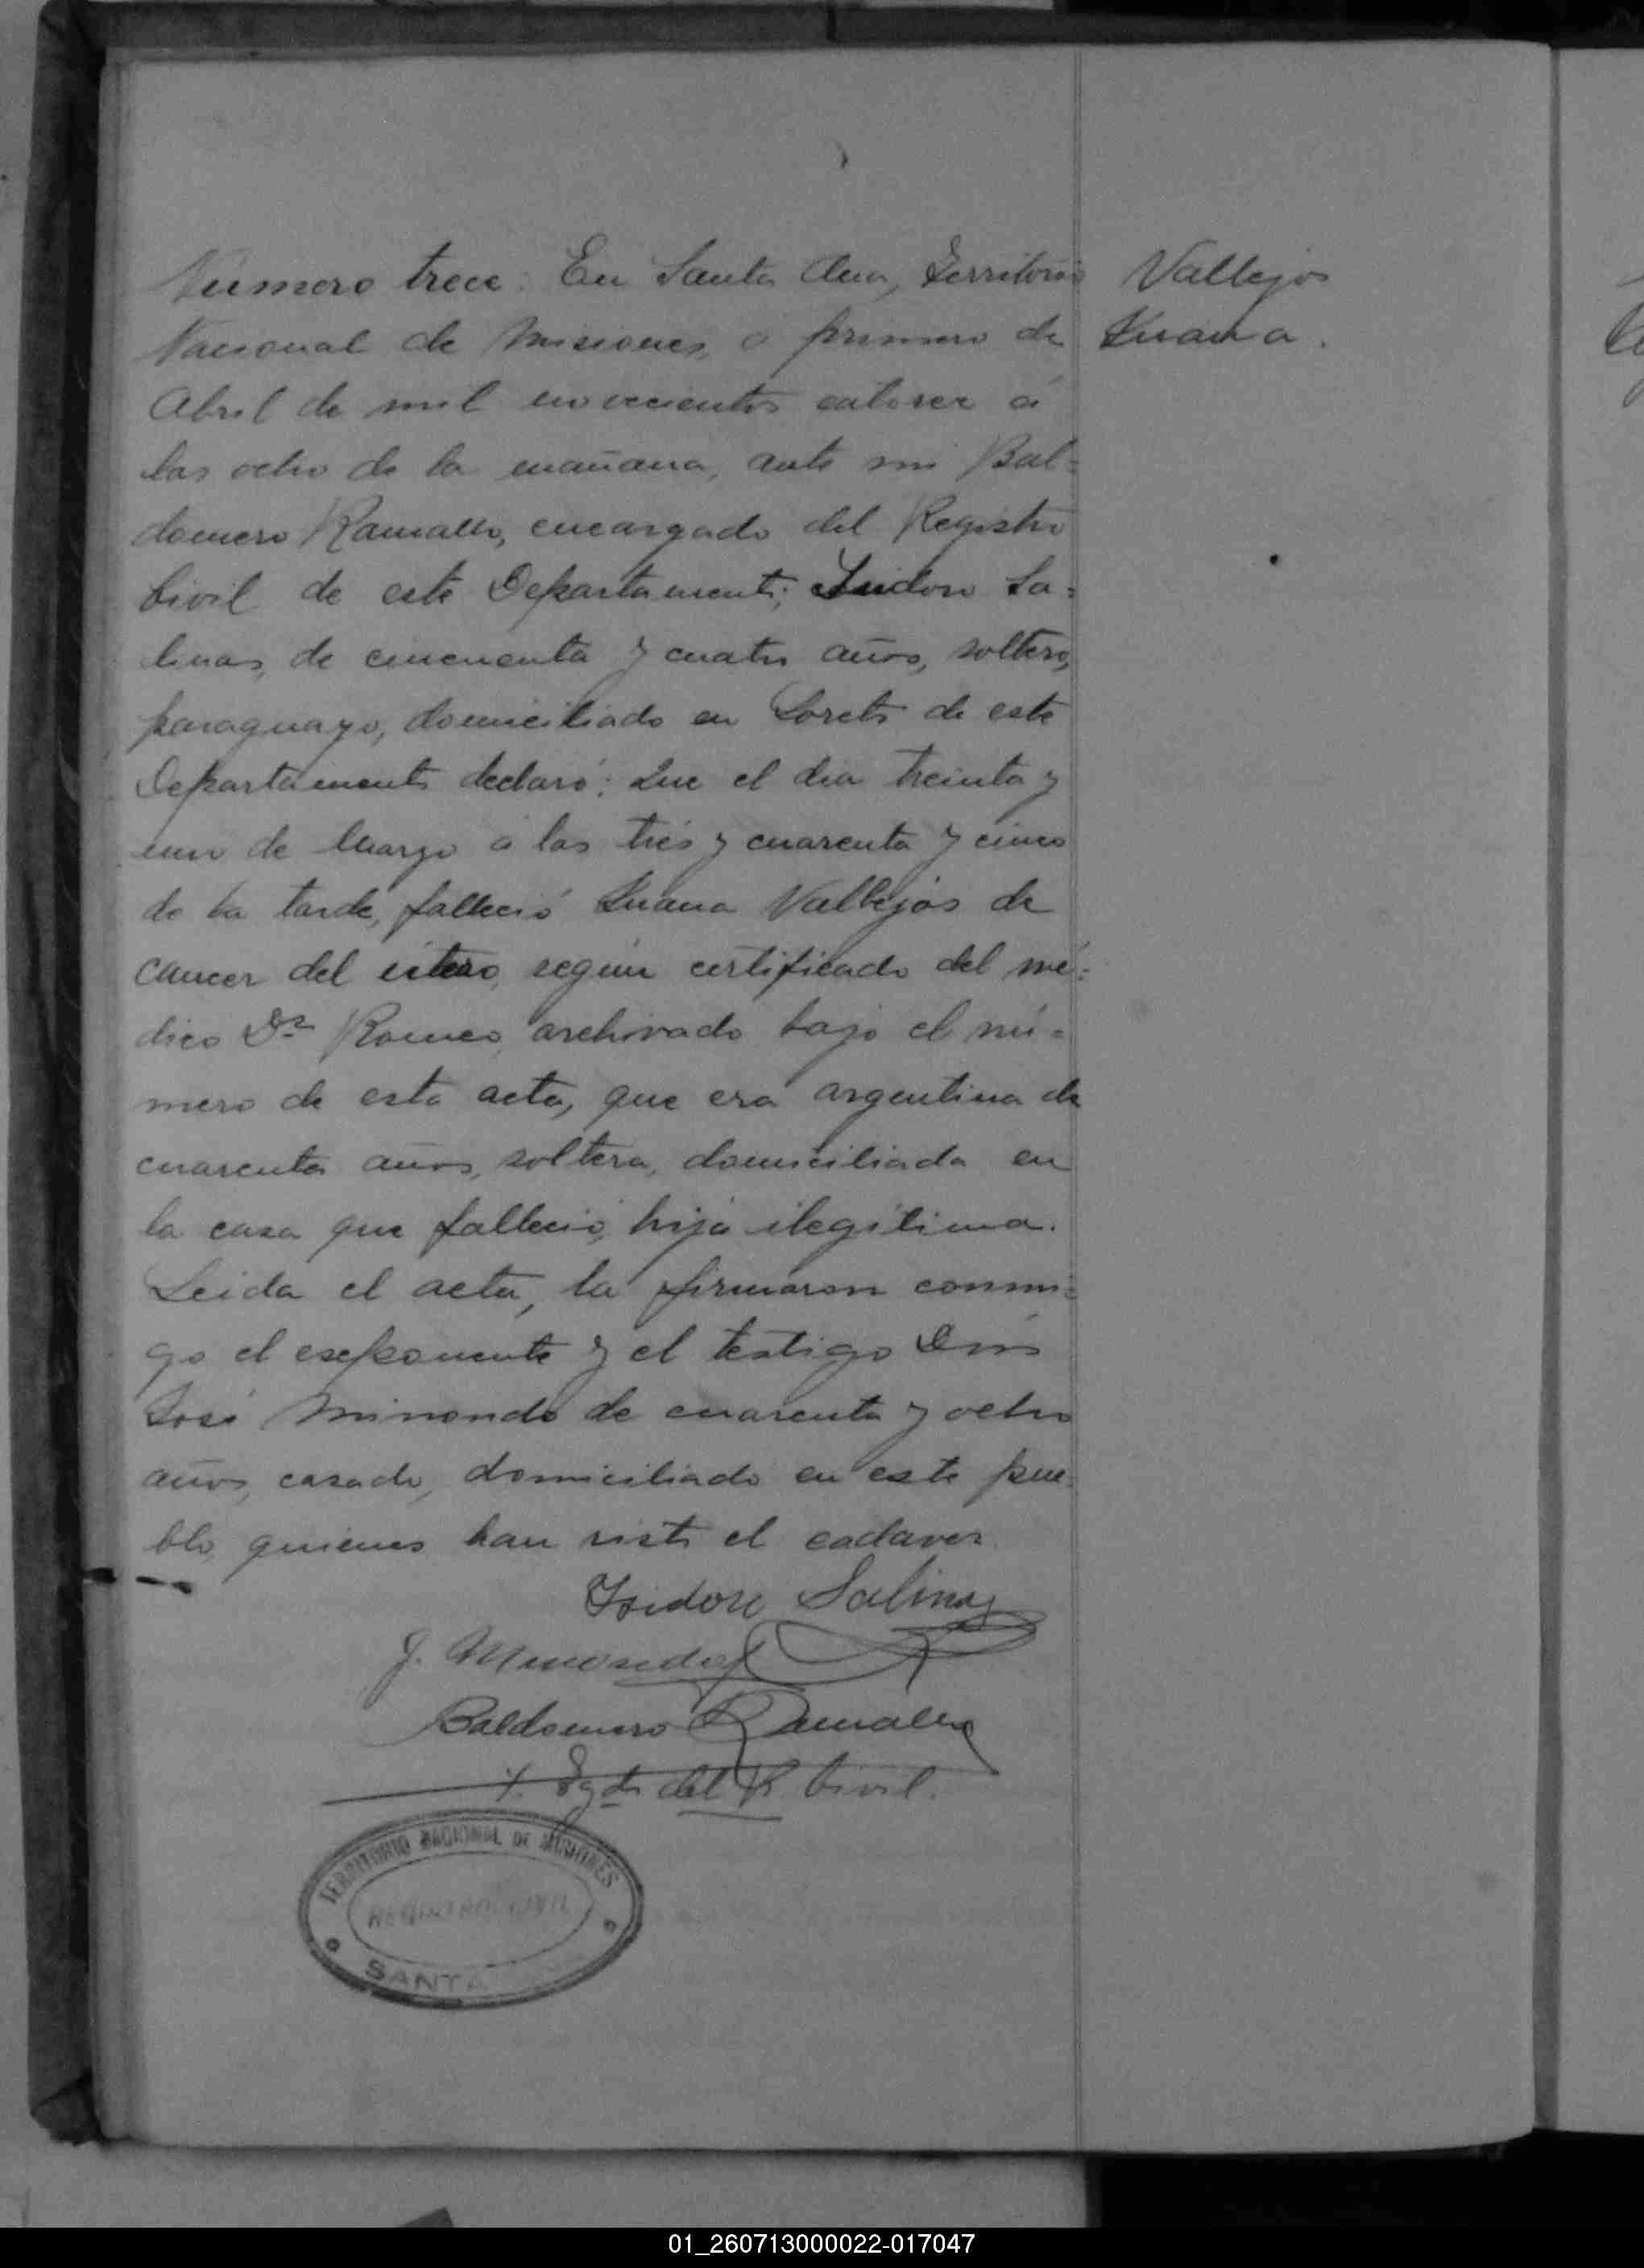 Número trece. En Santa Ana, Territorio
Nacional de Misiones, a primero de
Abril de mil novecientos catorce á
las ocho de la mañana, ante mi Bal=
domero Ramallo, encargado del Registro
Civil de este Departamento; Isidoro Sa=
linas, de cincuenta y cuatro años, soltero,
paraguayo, domiciliado en Loreto de este
Departamento declaró: Que el dia treinta y
uno de Marzo a las trés y cuarenta y cinco
de la tarde, falleció Juana Vallejos de
cancer del útero, según certificado del mé=
dico Dr Romeo, archivado bajo el nú=
mero de esta acta, que era argentina de
cuarenta años, soltera, domiciliada en
la casa que falleció, hija ilegítima.
Leida el acta, la firmaron conmi=
go el exponente y el testigo Don
José Minondo de cuarenta y ocho
años, casado, domiciliado en este pue=
blo, quienes han visto el cadaver.
Vallejos
Juana.
Isidoro Salinas
J. Minondo
Baldomero Ramallo
del R. Civil.
TERRITORIO NACIONAL DE MISIONES
REGISTRO CIVIL
SANTA
01_260713000022-017047